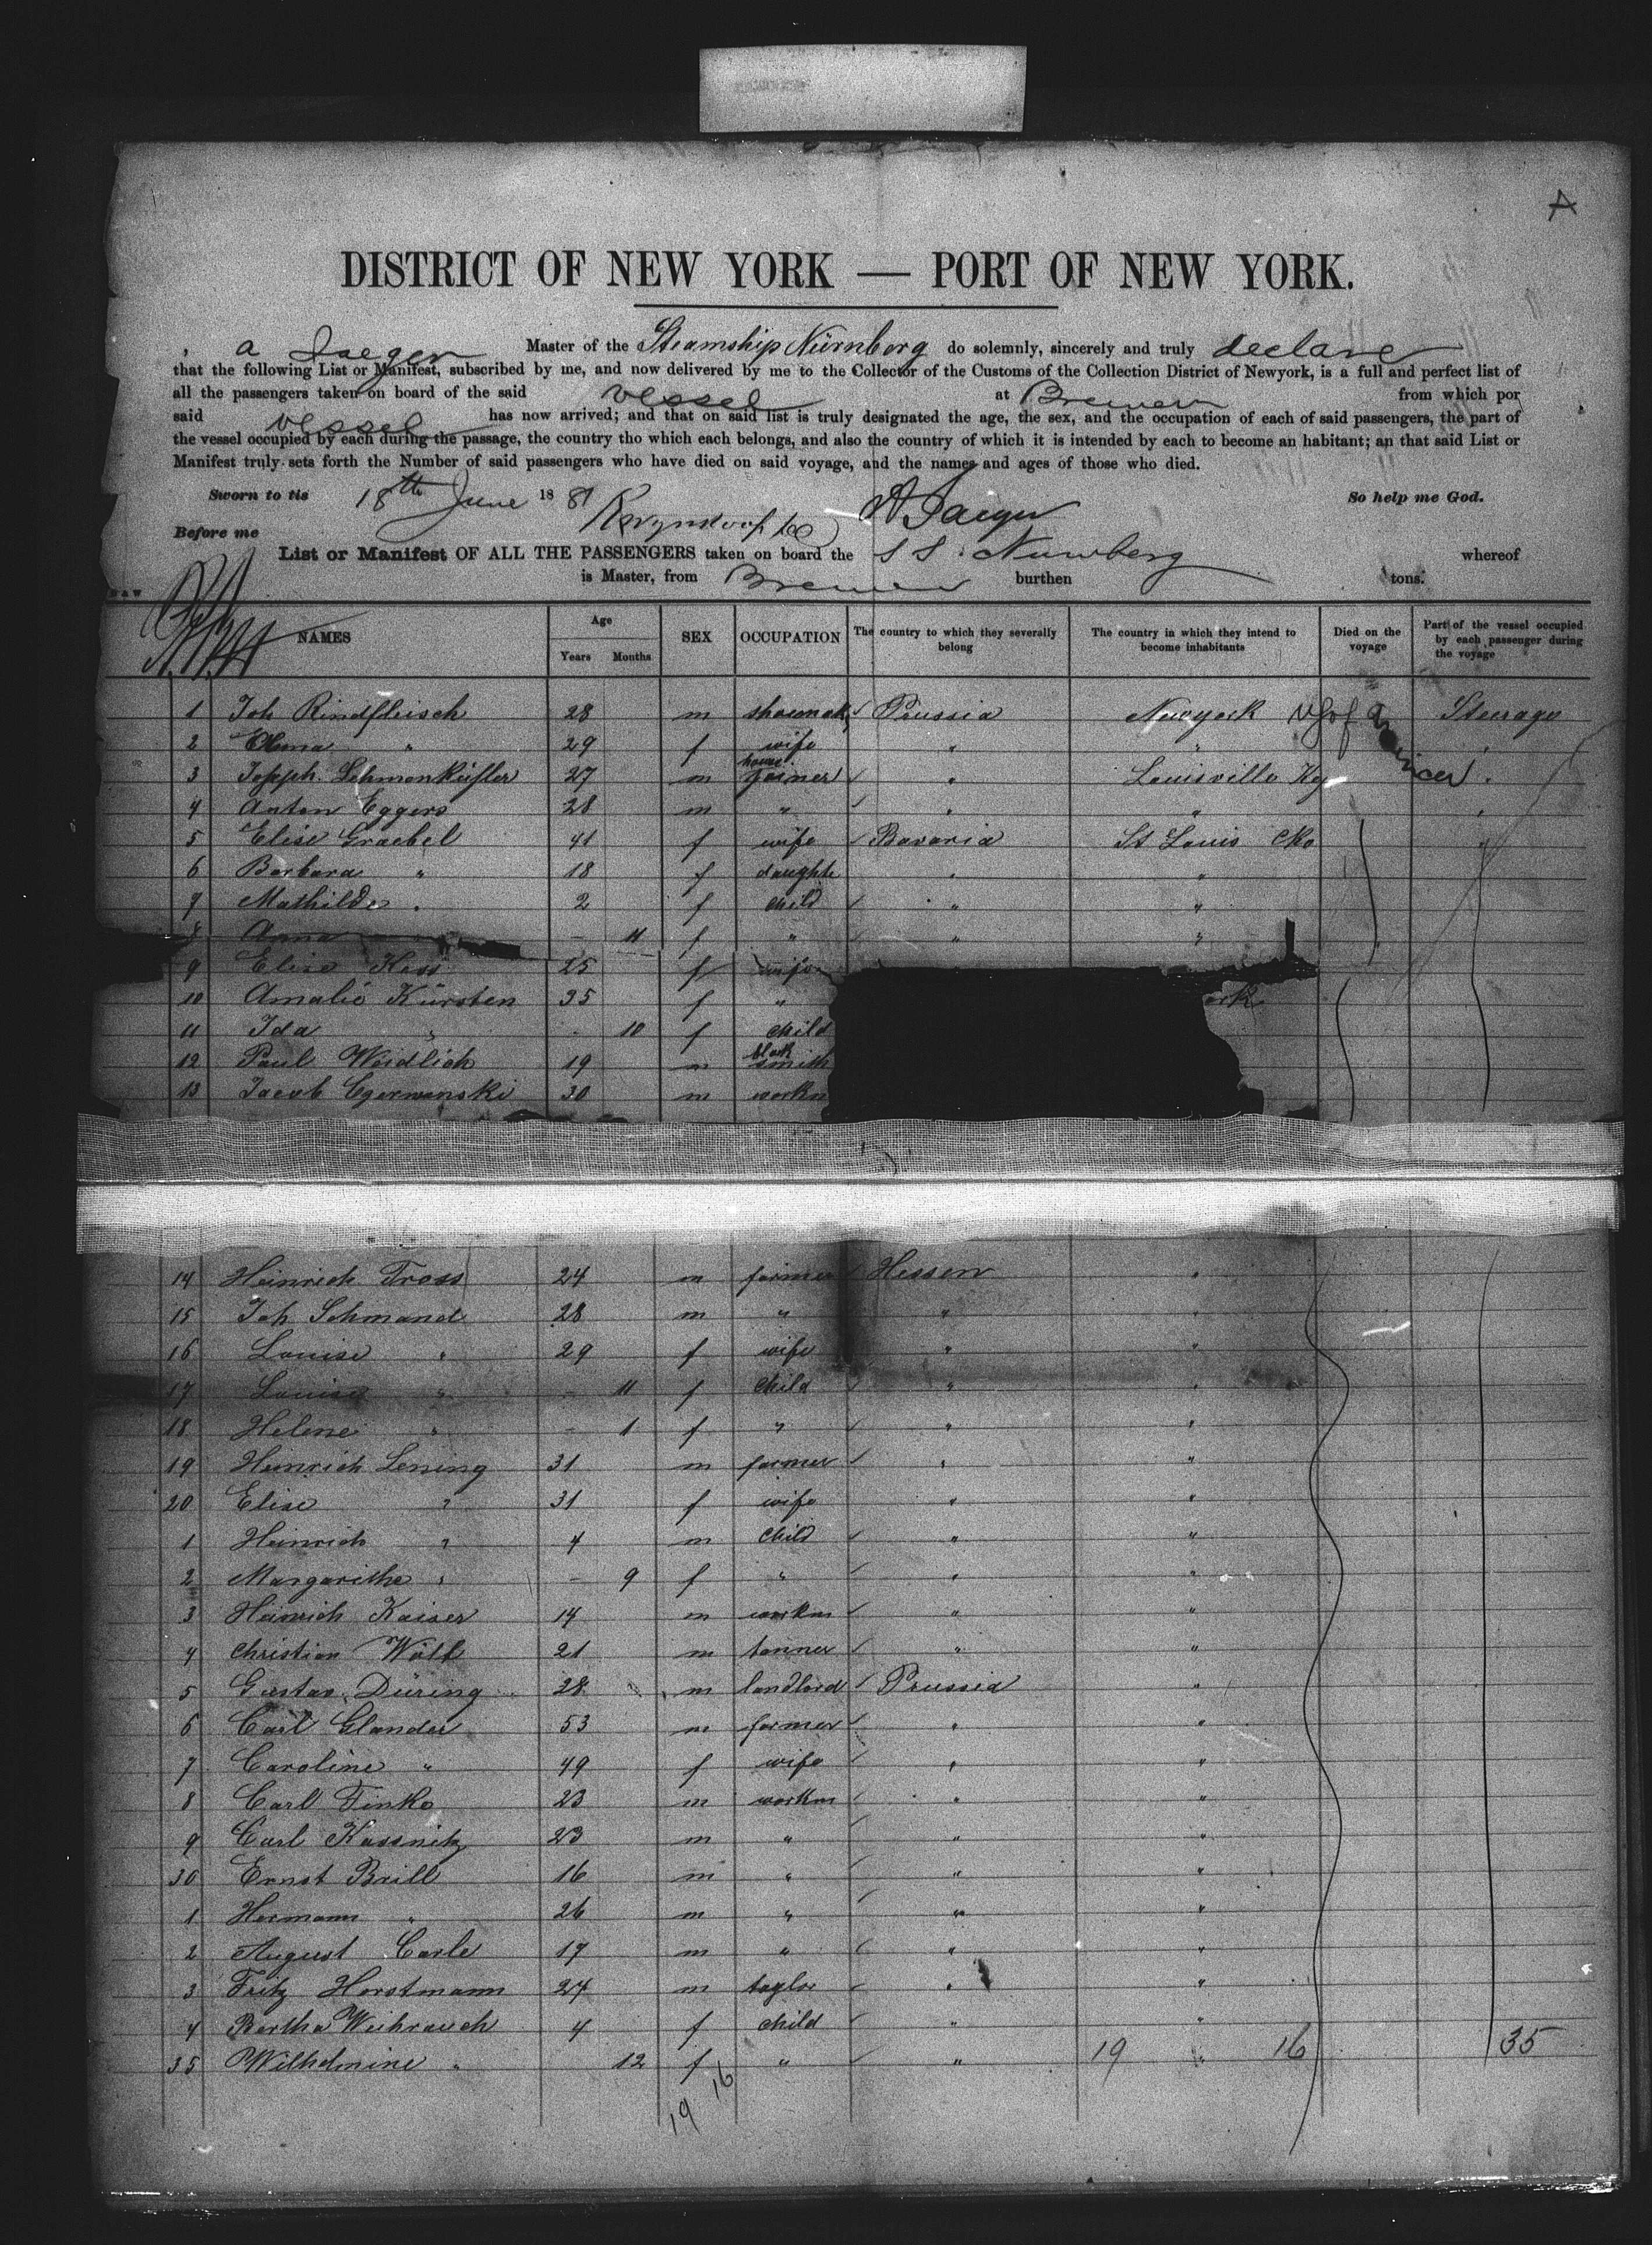 A
DISTRICT OF NEW YORK — PORT OF NEW YORK.
a Jaeger Master of the Steamship Nürnberg do solemnly, sincerely and truly declare
that the following List or Manifest, subscribed by me, and now delivered by me to the Collector of the Customs of the Collection District of Newyork, is a full and perfect list of
all the passengers taken on board of the said vessel at Bremen from which por
said vessel has now arrived; and that on said list is truly designated the age, the sex, and the occupation of each of said passengers, the part of
the vessel occupied by each during the passage, the country tho which each belongs, and also the country of which it is intended by each to become an habitant; an that said List or
Manifest truly sets forth the Number of said passengers who have died on said voyage, and the names and ages of those who died.
Sworn to tis 18th June 1881 A Jaeger So help me God.
Before me
List or Manifest OF ALL THE PASSENGERS taken on board the S S. Nurnberg whereof
is Master, from Bremen burthen tons.
NAMES Age Years Months SEX OCCUPATION The country to which they severally belong The country in which they intend to become inhabitants Died on the voyage Part of the vessel occupied by each passenger during the voyage
1 Joh Rindfleisch 28 m shoemak Prussia Newyork Steerage
2 " 29 f wife " "
3 Joseph 27 m house joiner " Louisville Ky "
4 Anton Eggers 28 m " " " "
5 Elise Graebel 41 f wife Bavaria St Louis Mo "
6 Barbara " 18 f daughte " "
7 Mathilde " 2 f child " "
8 Anna - 11 f " " "
9 Elise Hess 25 f wife
10 Amalie Kürsten 35 f " ork
11 Ida " - 10 f child
12 Paul Weidlich 19 m black smith
13 Jacob Cgerwenski 30 m workm
14 Heinrich Tross 24 m farmer Hessen "
15 Joh Schmand 28 m " " "
16 Louise " 29 f wife " "
17 Louise " - 11 f child " "
18 Helene " - 1 f " " "
19 Heinrich Lening 31 m farmer " "
20 Elise " 31 f wife " "
1 Heinrich " 4 m child " "
2 Margarethe " - 9 f " " "
3 Heinrich Kaiser 14 m workm " "
4 Christian 21 m tanner " "
5 Gustav Düring 28 m landlord Prussia "
6 Carl Glander 53 m farmer " "
7 Caroline " 49 f wife " "
8 Carl Finke 23 m workm " "
9 Carl Kassnitz 23 m " " "
30 Ernst Brill 16 m " " "
1 Hermann " 26 m " " "
2 August Carle 17 m " " "
3 Fritz Horstmann 24 m taylor " "
4 Bertha Weihrauch 4 f child " "
35 Wilhelmine " 12 f " " 19 " 16 35
19 16